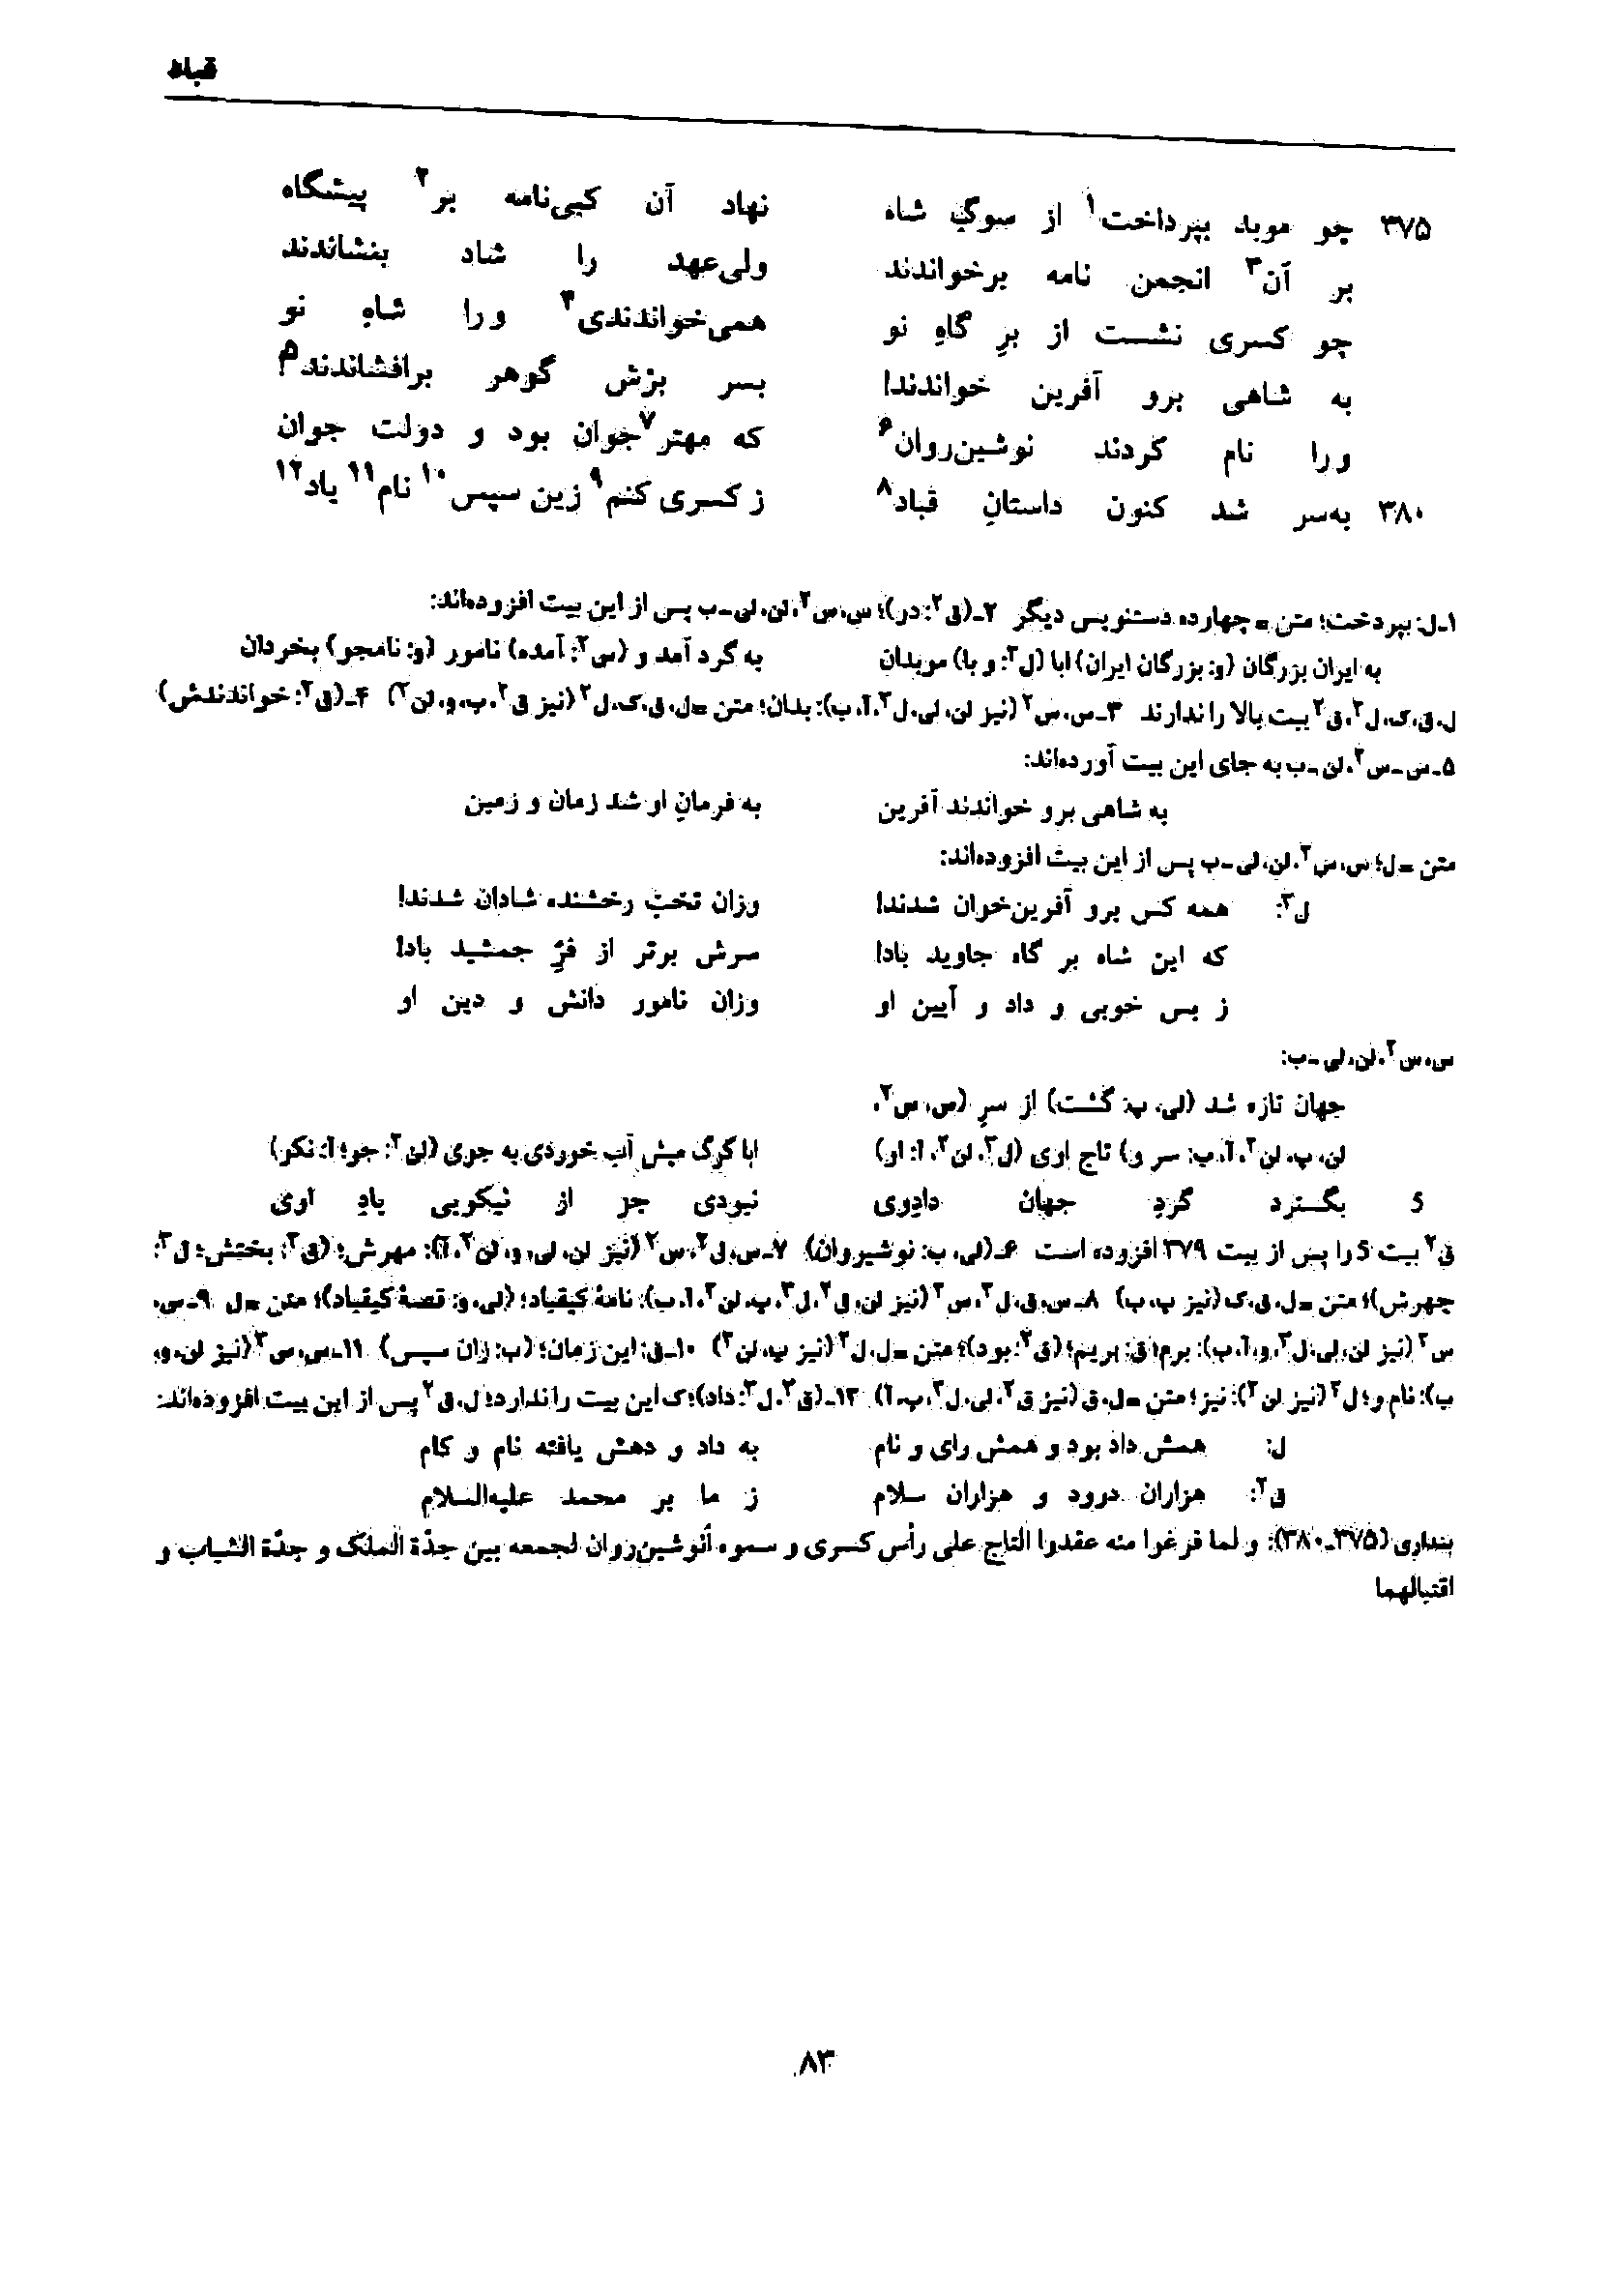 قباد
۳۷۵ چو موبد بپرداخت۱ از سوگِ شاه نهاد آن کیی‌نامه بر۲ پیشگاه
بر آن۳ انجمن نامه برخواندند ولی‌عهد را شاد بنشاندند
چو کسری نشست از برِ گاهِ نو همی‌خواندندی۴ ورا شاهِ نو
به شاهی برو آفرین خواندند! بسر برْش گوهر برافشاندند۵!
ورا نام کردند نوشین‌روان۶ که مهتر۷ جوان بود و دولت جوان
۳۸۰ به‌سر شد کنون داستانِ قباد۸ ز کسری کنم۹ زین سپس۱۰ نام۱۱ یاد۱۲
۱ـ ل: بپردخت؛ متن = چهارده دستنویس دیگر ۲ـ (ق۲: در)؛ س، س۲، لن، لی ـ ب پس از این بیت افزوده‌اند:
به ایران بزرگان (و: بزرگان ایران) ابا (ل۳: و با) موبدان به گرد آمد و (س۲: آمده) نامور (و: نامجو) بخردان
ل، ق، ک، ل۲، ق۲ بیت بالا را ندارند ۳ـ س، س۲ (نیز لن، لی، ل۳، آ، ب): بدان؛ متن = ل، ق، ک، ل۲ (نیز ق۲، پ، و، لن۲) ۴ـ (ق۲: خواندندش)
۵ـ س ـ س۲، لن ـ ب به جای این بیت آورده‌اند:
به شاهی برو خواندند آفرین به فرمانِ او شد زمان و زمین
متن = ل؛ س، س۲، لن، لی ـ ب پس از این بیت افزوده‌اند:
ل۳: همه کس برو آفرین‌خوان شدند! وزان تختِ رخشنده شادان شدند!
که این شاه بر گاه جاوید بادا سرش برتر از فرِّ جمشید بادا
ز بس خوبی و داد و آیین او وزان نامور دانش و دین او
س، س۲، لن، لی ـ ب:
جهان تازه شد (لی، پ: گشت) از سرِ (س، س۲،
لن، پ، لن۲، آ، ب: سر و) تاج اوی (ل۳، لن۲، آ: او) ابا گرگ میش آب خوردی به جوی (لن۲: جو؛ آ: نکو)
5 بگسترد گردِ جهان داوری نبودی جز از نیکویی یادِ اوی
ق۲ بیت 5 را پس از بیت ۳۷۹ افزوده است ۶ـ (لی، ب: نوشیروان) ۷ـ س، ل۲، س۲ (نیز لن، لی، و، لن۲، آ): مهرش؛ (ق۲: بختش؛ ل۳:
چهرش)؛ متن = ل، ق، ک (نیز پ، ب) ۸ـ س، ق، ل۲، س۲ (نیز لن، ق۲، ل۳، پ، لن۲، آ، ب): نامهٔ کیقباد؛ (لی، و: قصهٔ کیقباد)؛ متن = ل ۹ـ س،
س۲ (نیز لن، لی، ل۳، و، آ، ب): برم؛ ق: بریم؛ (ق۲: بود)؛ متن = ل، ل۲ (نیز پ، لن۲) ۱۰ـ ق: این زمان؛ (ب: زان سپس) ۱۱ـ س، س۲ (نیز لن، و،
ب): نام و؛ ل۲ (نیز لن۲): نیز؛ متن = ل، ق (نیز ق۲، لی، ل۳، پ، آ) ۱۲ـ (ق۲، ل۳: داد)؛ ک این بیت را ندارد؛ ل، ق۲ پس از این بیت افزوده‌اند:
ل: همش داد بود و همش رای و نام به داد و دهش یافته نام و کام
ق۲: هزاران درود و هزاران سلام ز ما بر محمد علیه‌السلام
بنداری (۳۷۵ـ۳۸۰): و لما فرغوا منه عقدوا التاج علی رأس کسری و سموه أنوشین‌روان لجمعه بین جدّة الملک و جدّة الشباب و
اقتبالهما
۸۳